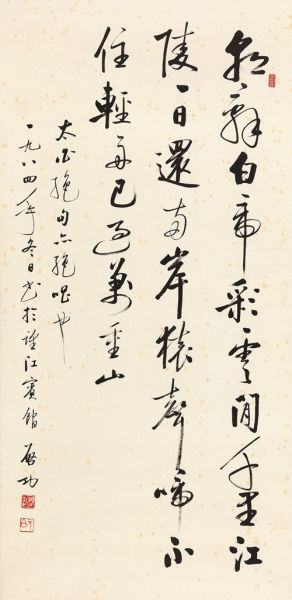 朝辞白帝彩云间千里江
陵一日還两岸猿聲啼不
住輕舟已過萬重山
太白絶句亦絶唱也
一九八四年冬日书於漓江賓館 启功